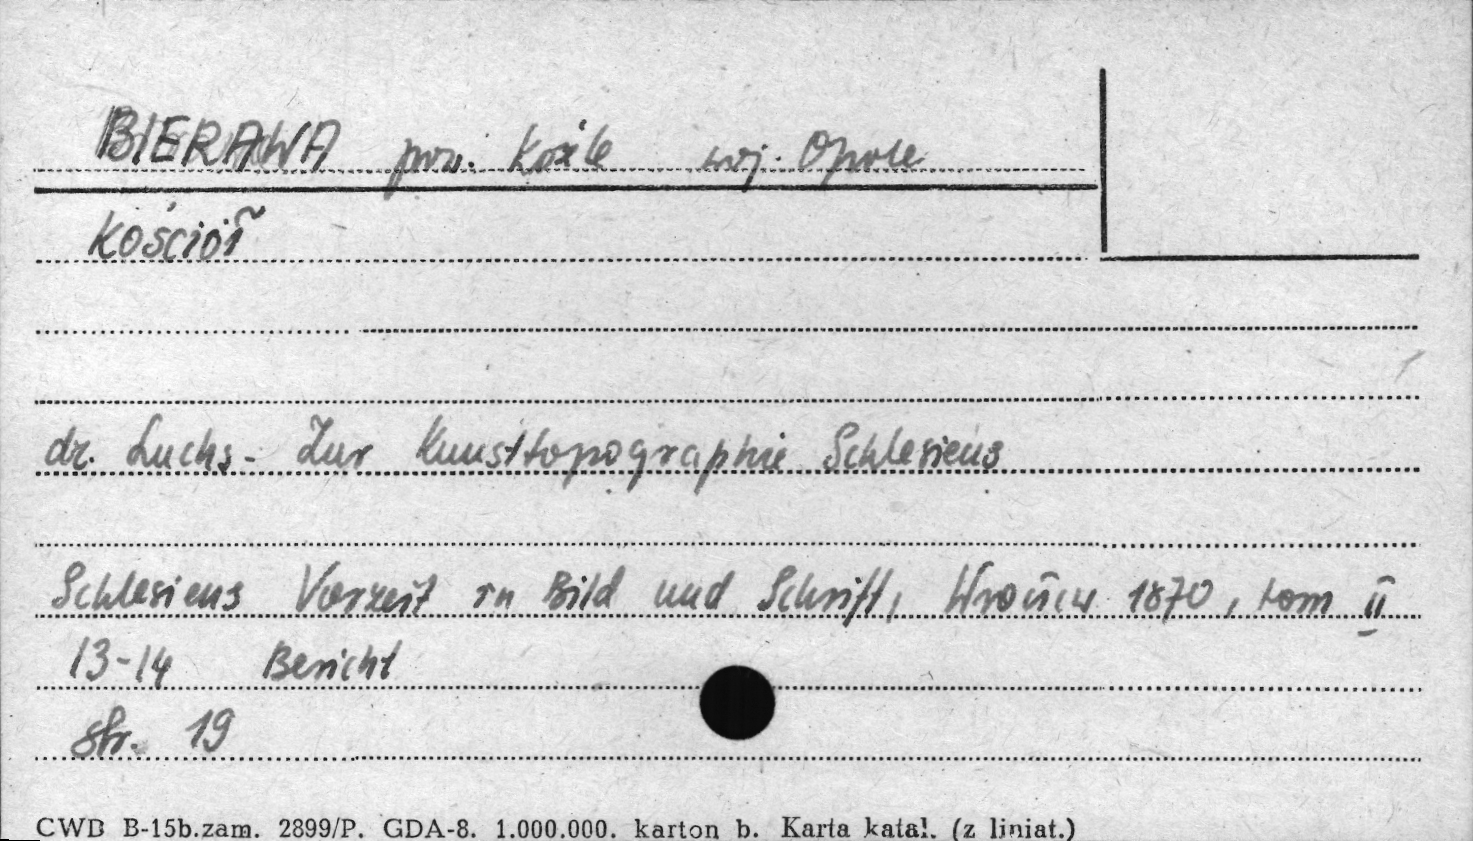 BIERAWA pow. Koźle woj. Opole
Kościół
dr. Luchs - Zur Kunsttopographie Schlesiens
Schlesiens Vorzeit in Bild und Schrift, Wrocław 1870, tom II
13-14 Bericht
str. 19
CWD B-15b.zam. 2899/P. GDA-8. 1.000.000. karton b. Karta katal. (z liniat.)